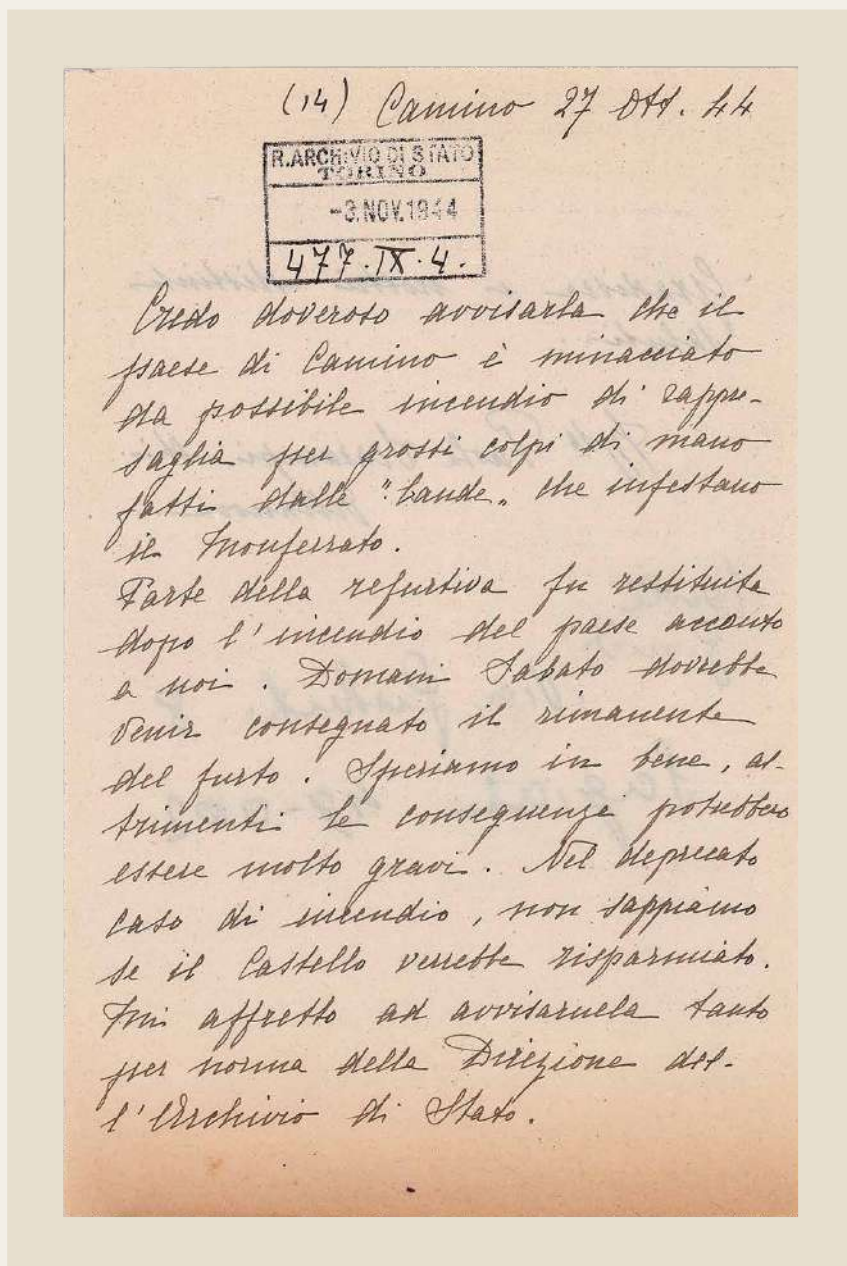 (14) Camino 27 Ott. 44
R. ARCHIVIO DI STATO
TORINO
-3. NOV. 1944
477. IX. 4.
Credo doveroso avvisarla che il
paese di Camino è minacciato
da possibile incendio di rappre-
saglia per grossi colpi di mano
fatti dalle "bande„ che infestano
il Monferrato.
Parte della refurtiva fu restituita
dopo l'incendio del paese accanto
a noi. Domani Sabato dovrebbe
venir consegnato il rimanente
del furto. Speriamo in bene, al-
trimenti le conseguenze potrebbero
essere molto gravi. Nel deprecato
caso di incendio, non sappiamo
se il Castello verrebbe risparmiato.
Mi affretto ad avvisarnela tanto
per norma della Direzione del-
l'Archivio di Stato.